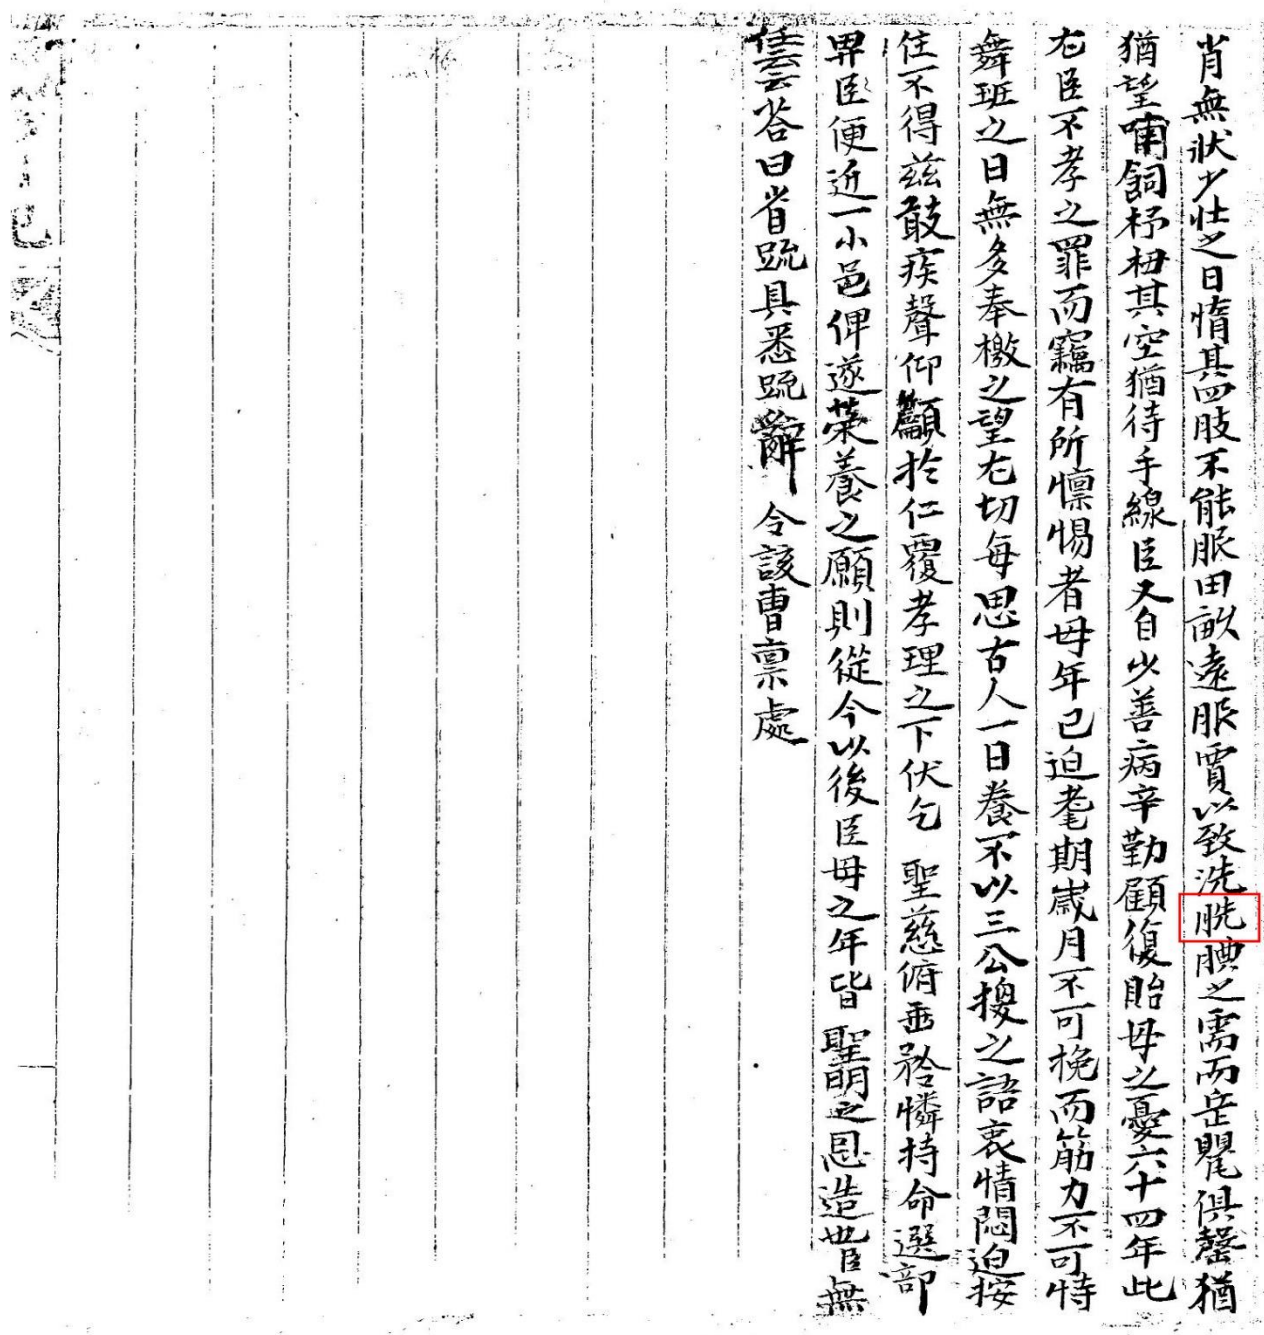 肖無狀少壯之日惰其四肢不能服田畝遠服賈以致洗腆之需而缶甖俱罄猶
猶望哺飼杼柚其空猶待手線臣又自少善病辛勤顧復貽母之憂六十四年此
尤臣不孝之罪而竊有所懍惕者母年已迫耄期歲月不可挽而筋力不可恃
舞班之日無多奉檄之望尤切每思古人一日養不以三公換之語衷情悶迫按
住不得玆敢疾聲仰籲於仁覆孝理之下伏乞 聖慈俯垂矜憐特命選部
畀臣便近一小邑俾遂榮養之願則從今以後臣母之年皆 聖明之恩造也臣無
任云云答曰省疏具悉疏辭 令該曹稟處